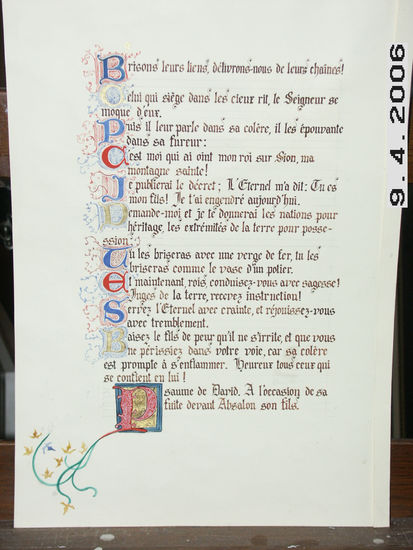 Brisons leurs liens, délivrons-nous de leurs chaînes!
Celui qui siège dans les cieux rit, le Seigneur se
moque d'eux.
Puis il leur parle dans sa colère, il les épouvante
dans sa fureur:
C'est moi qui ai oint mon roi sur Sion, ma
montagne sainte!
Je publierai le décret; L'Eternel m'a dit: Tu es
mon fils! Je t'ai engendré aujourd'hui.
Demande-moi et je te donnerai les nations pour
héritage, les extrémités de la terre pour posse-
ssion;
Tu les briseras avec une verge de fer, tu les
briseras comme le vase d'un potier.
Et maintenant, rois, conduisez-vous avec sagesse!
Juges de la terre, recevez instruction!
Servez l'Eternel avec crainte, et réjouissez-vous
avec tremblement.
Baisez le fils de peur qu'il ne s'irrite, et que vous
ne périssiez dans votre voie, car sa colère
est prompte à s'enflammer. Heureux tous ceux qui
se confient en lui!
Psaume de David. A l'occasion de sa
fuite devant Absalon son fils.
9.4.2006